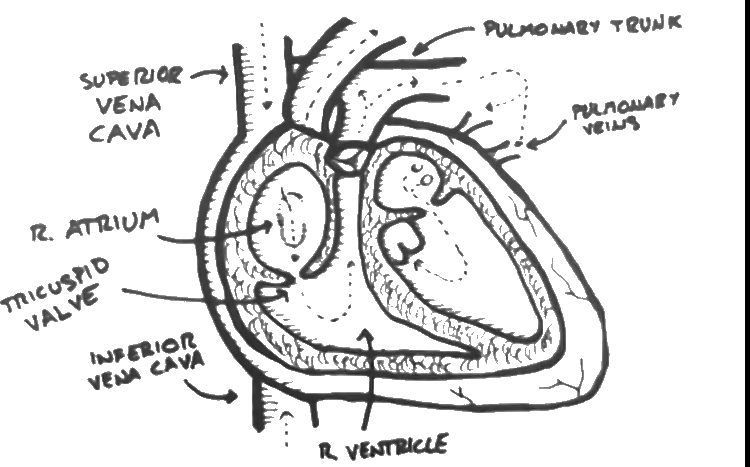 PULMONARY TRUNK
SUPERIOR
VENA
CAVA
PULMONARY
VEINS
R. ATRIUM
TRICUSPID
VALVE
INFERIOR
VENA CAVA
R. VENTRICLE